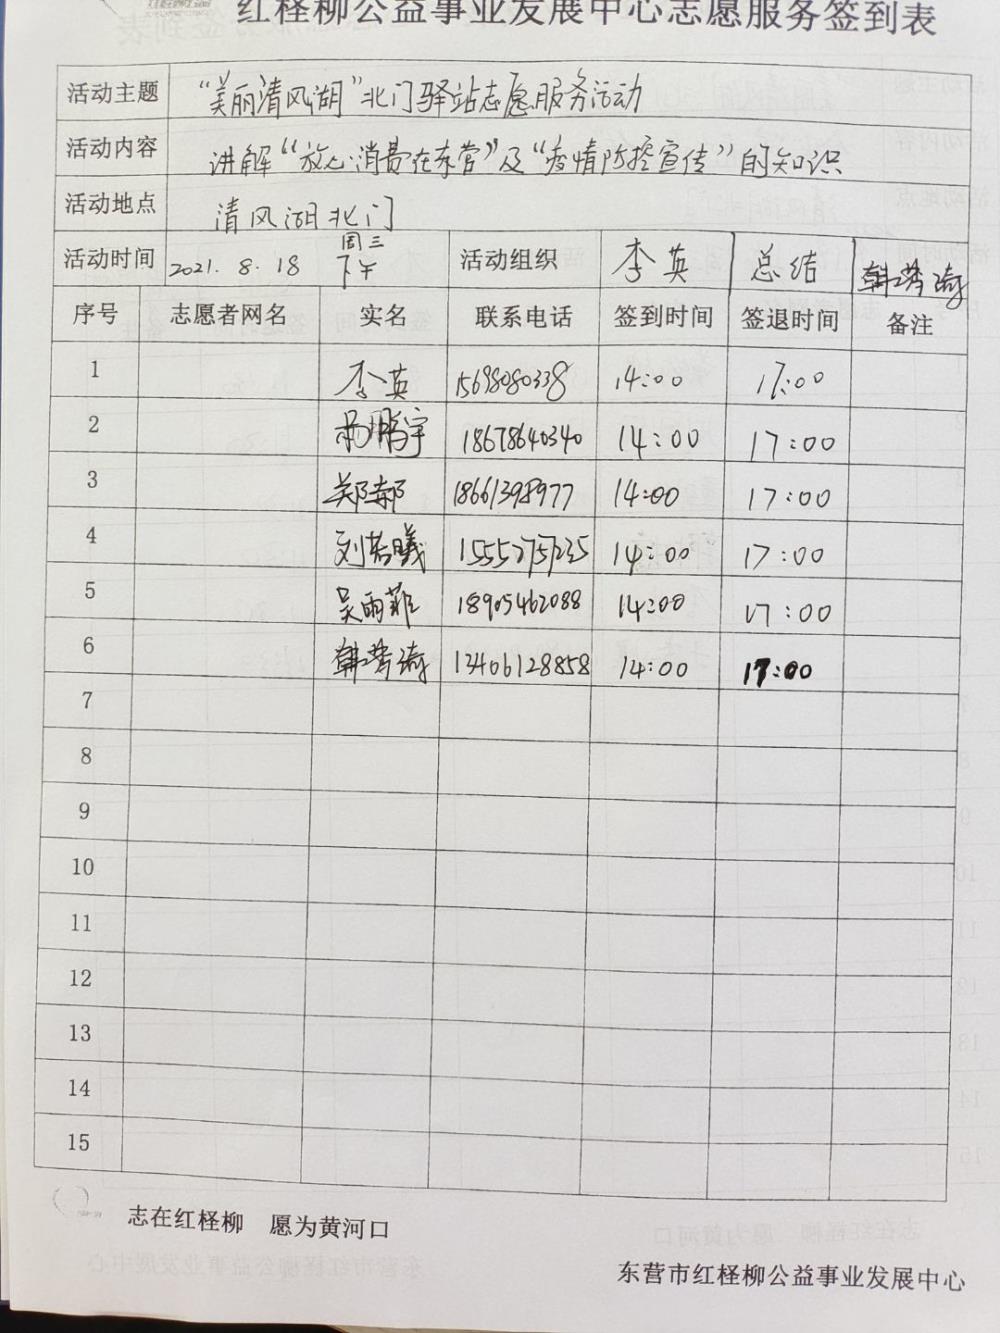 红柽柳公益事业发展中心志愿服务签到表
活动主题 “美丽清风湖”北门驿站志愿服务活动
活动内容 讲解“放心消费在东营”及“疫情防控宣传”的知识
活动地点 清风湖北门
活动时间 2021.8.18 周三下午 活动组织 李英 总结 韩莠涛
序号 志愿者网名 实名 联系电话 签到时间 签退时间 备注
1 李英 15698080338 14:00 17:00
2 鹏宇 18678640340 14:00 17:00
3 郑郝 18661398977 14:00 17:00
4 刘若曦 15552757235 14:00 17:00
5 吴雨菲 18905462088 14:00 17:00
6 13406128858 14:00 17:00
7
8
9
10
11
12
13
14
15
志在红柽柳 愿为黄河口
东营市红柽柳公益事业发展中心